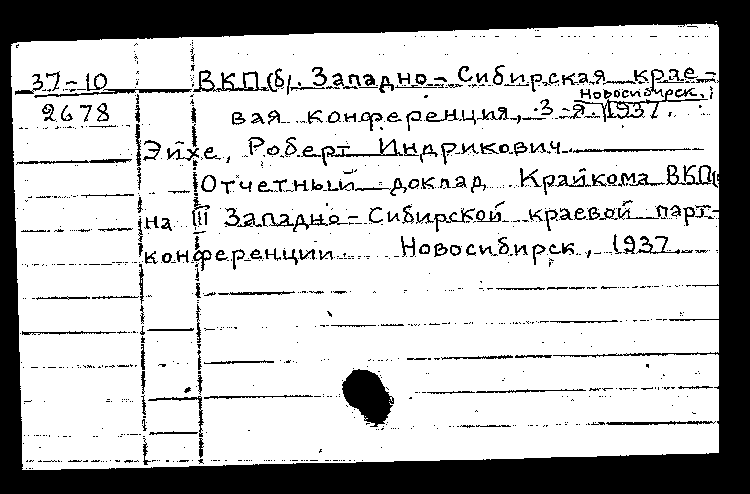 37-10 ВКП(б). Западно-Сибирская крае-
Новосибирск,
2678 вая конференция, 3-я. 1937.
Эйхе, Роберт Индрикович
Отчетный доклад Крайкома ВКП(
на III Западно-Сибирской краевой парт-
конференции. Новосибирск, 1937.